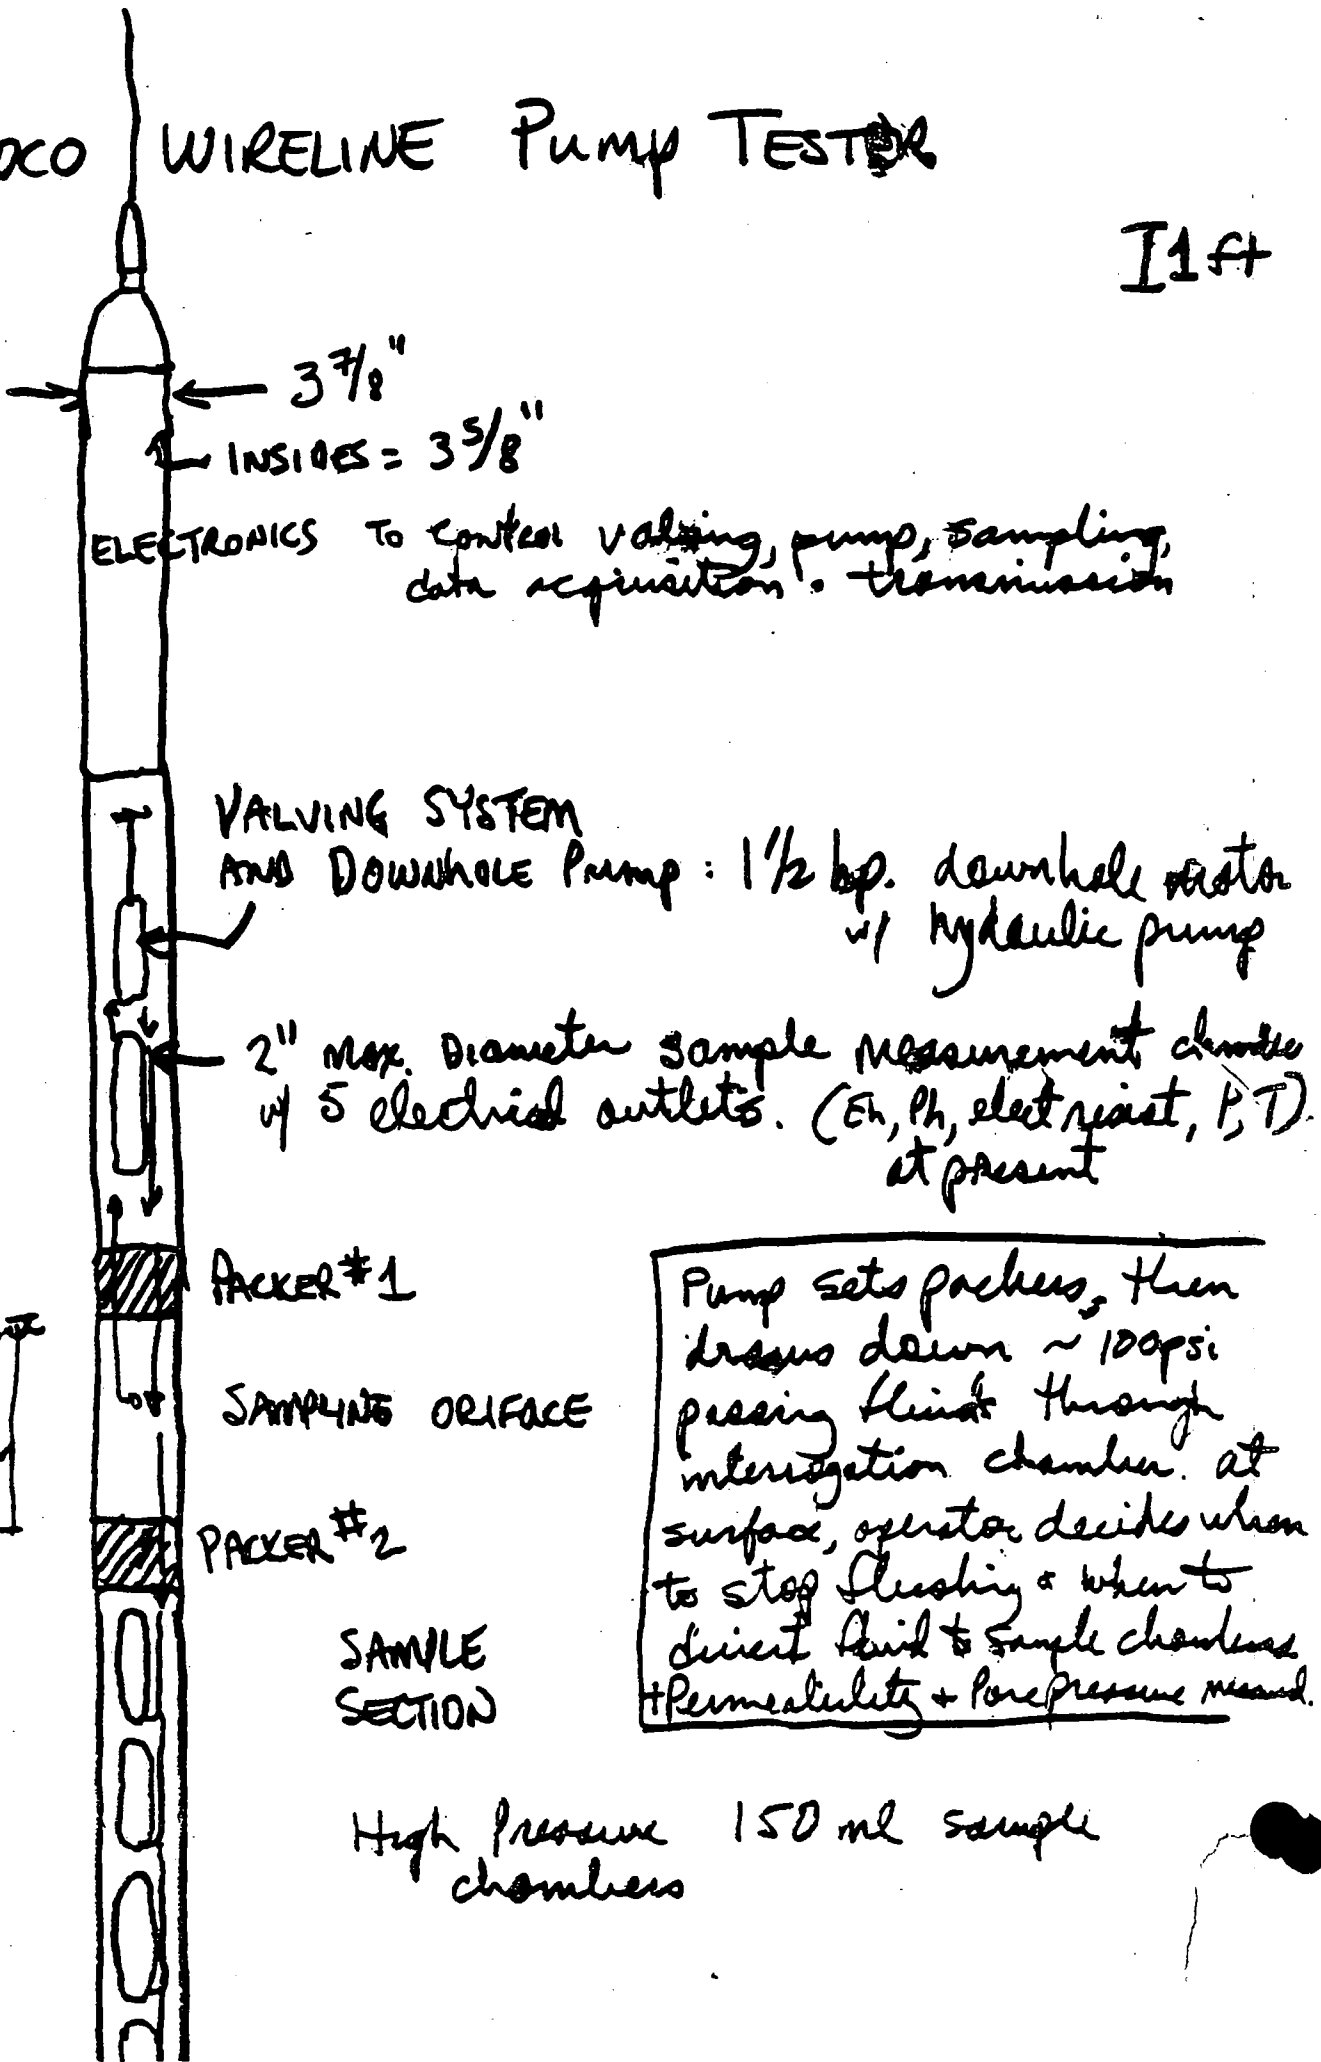 OCO WIRELINE Pump TESTER
I 1 ft
3 7/8"
INSIDES = 3 5/8"
ELECTRONICS To Control valving, pump, sampling,
data acquisition + transmission
VALVING SYSTEM
AND DOWNHOLE Pump : 1 1/2 hp. downhole motor
w/ hydraulic pump
2" Max. Diameter sample measurement chamber
w/ 5 electrical outlets. (Eh, Ph, elect resist, P, T)
at present
PACKER #1
Pump sets packers, then
draws down ~ 100psi
passing fluids through
interrogation chamber. at
surface, operator decides when
to stop flushing + when to
divert fluid to sample chambers
+Permeability + Pore pressure measured.
SAMPLING ORIFACE
PACKER #2
SAMPLE
SECTION
High Pressure 150 ml sample
chambers